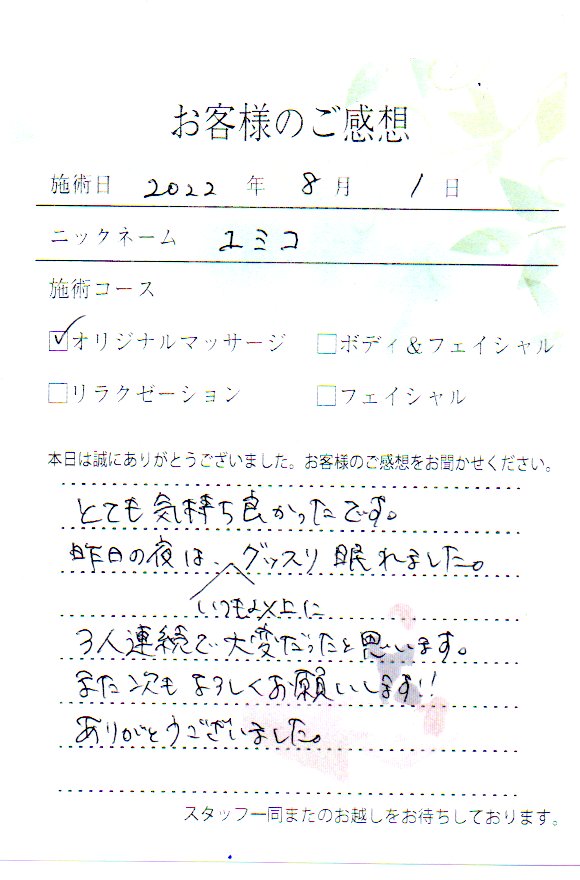 お客様のご感想
施術日 2022 年 8 月 1 日
ニックネーム ユミコ
施術コース
☑オリジナルマッサージ □ボディ&フェイシャル
□リラクゼーション □フェイシャル
本日は誠にありがとうございました。お客様のご感想をお聞かせください。
とても気持ち良かったです。
昨日の夜は、グッスリ眠れました。
いつも以上に
3人連続で大変だったと思います。
また次もよろしくお願いします!!
ありがとうございました。
スタッフ一同またのお越しをお待ちしております。